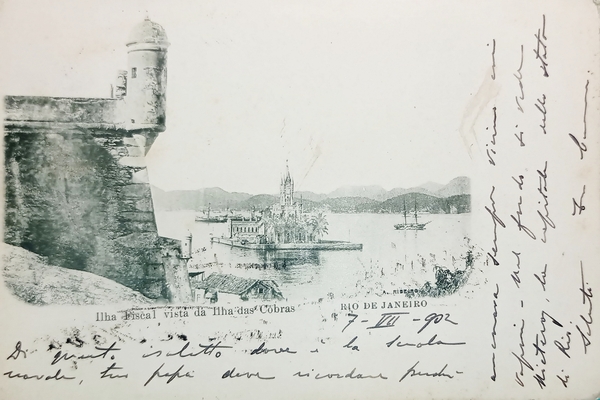 Ilha Fiscal vista da Ilha das Cobras
RIO DE JANEIRO
7-VII-902
Di questo isoletto dove è la scuola
navale, tuo papà deve ricordare perchè
ancorava sempre vicino ai
vapori - nel fondo si vede
Nicteroy la capitale dello stato
di Rio.
Saluti